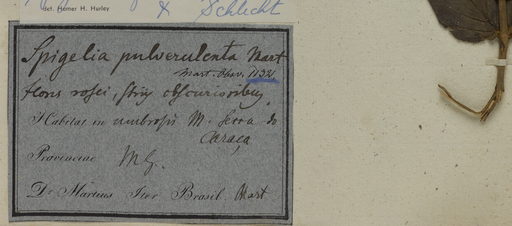 det. Homer H. Hurley
& Schlecht
Spigelia pulverulenta Mart
Mart. Obsv. 1132
flores rosei, striis obscurioribus
Habitat in umbrosis M. Serra do
Caraça
Provinciae M G.
Dr. Martius Iter Brasil. Mart